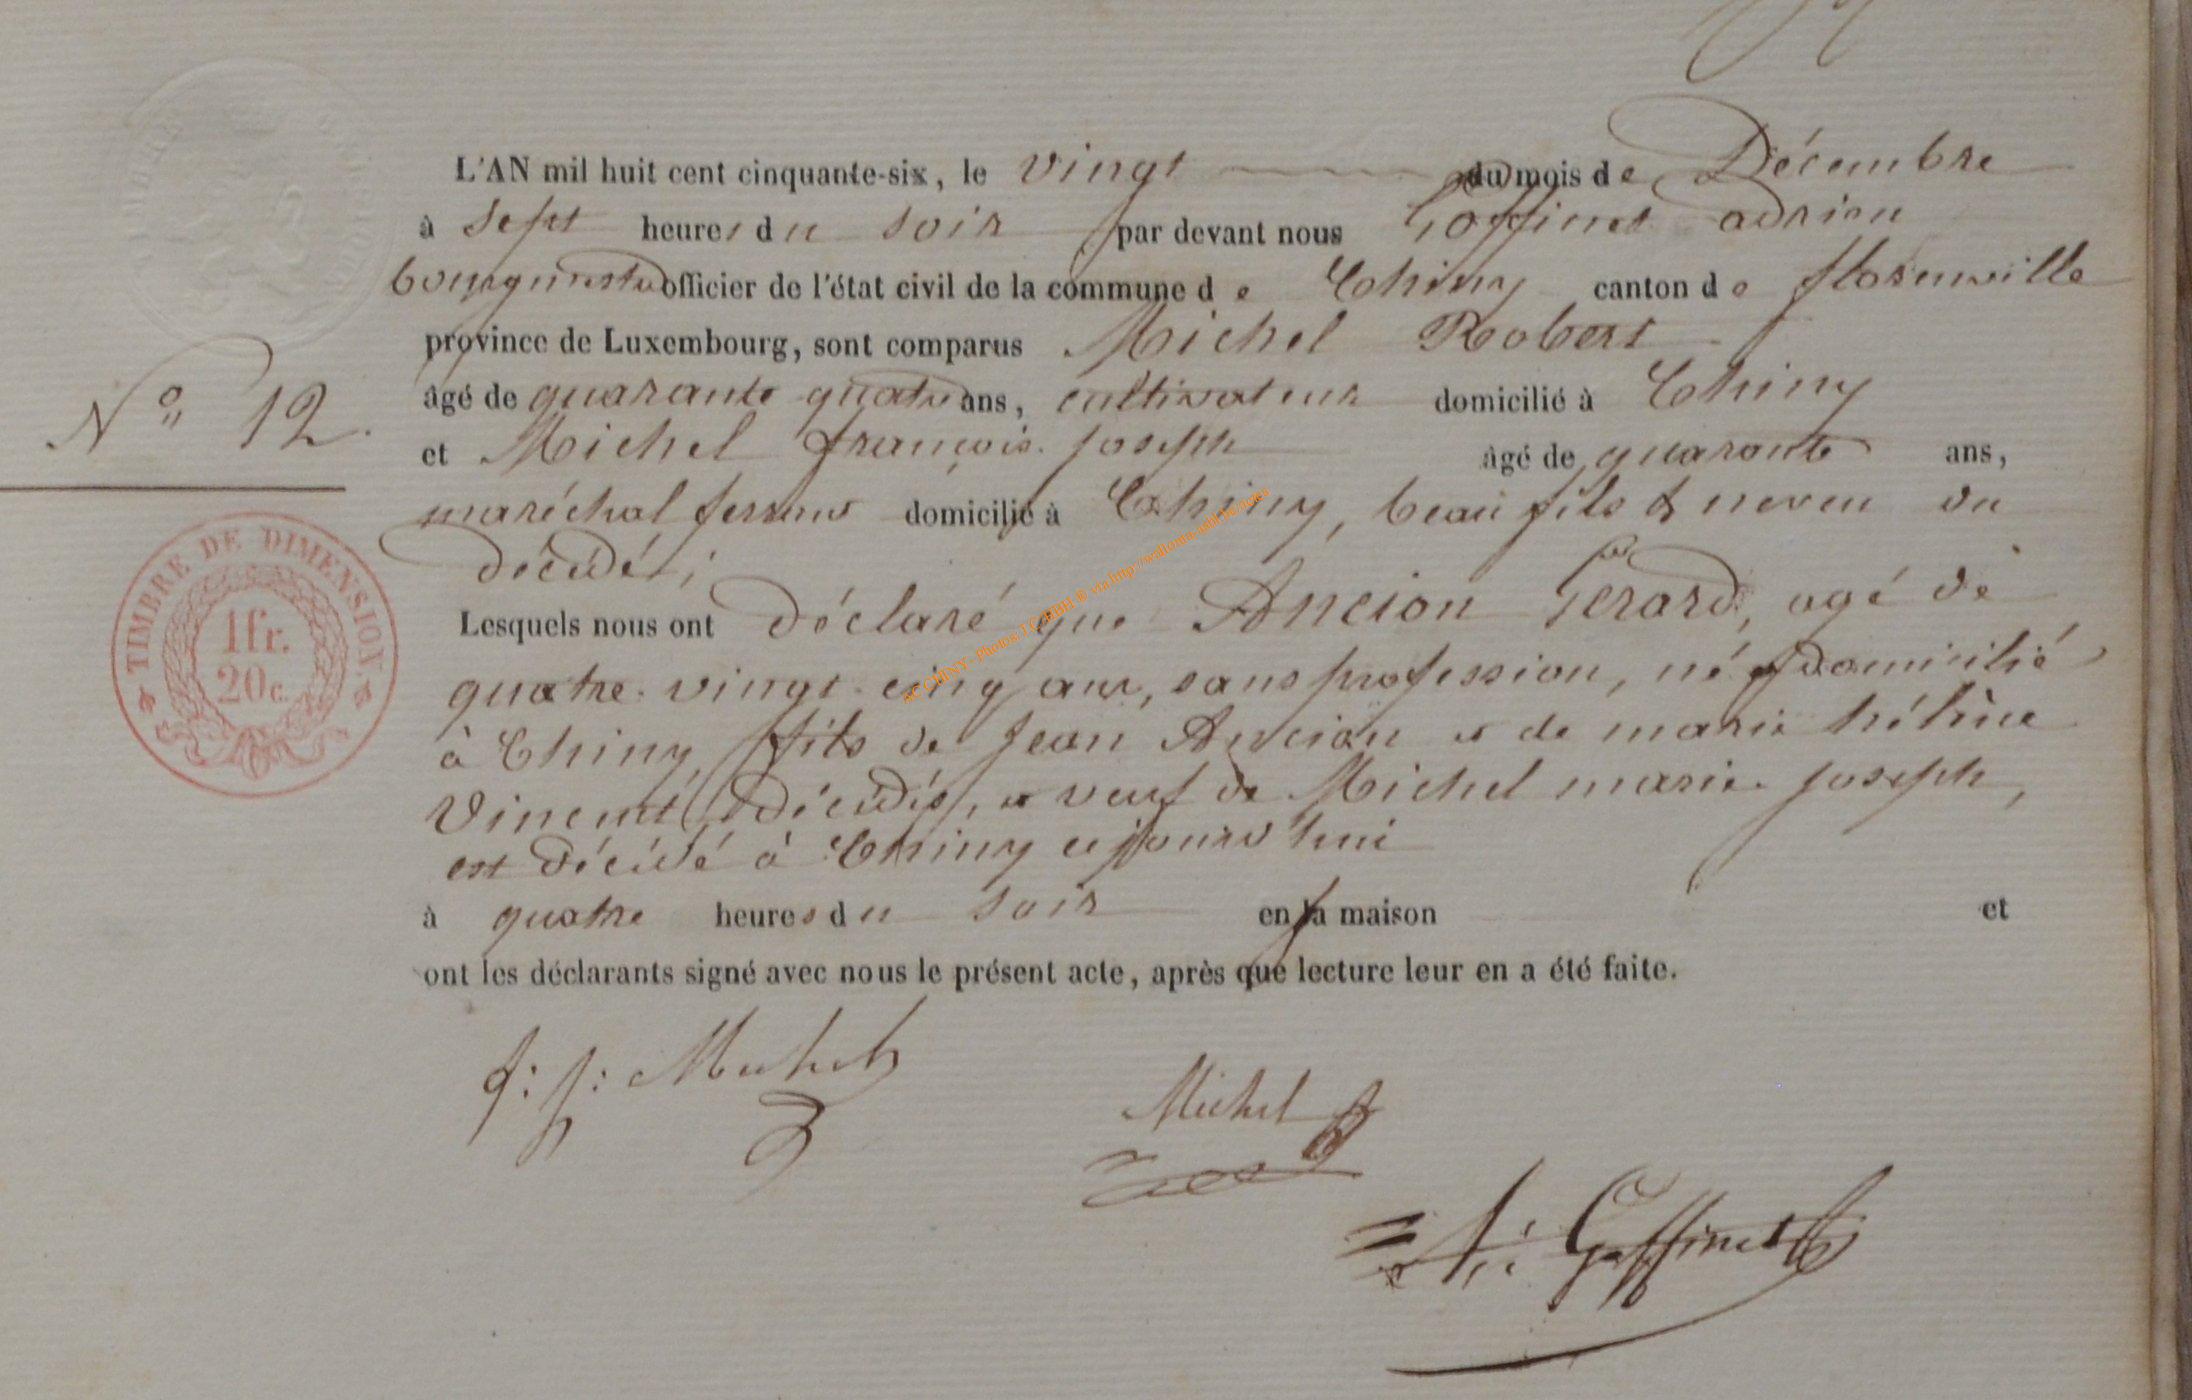 L'AN mil huit cent cinquante-six, le vingt du mois de Décembre
à sept heures du soir par devant nous Goffinet adrien
bourgmestre officier de l'état civil de la commune de Chiny canton de florenville
province de Luxembourg, sont comparus Michel Robert
âgé de quarante quatre ans, cultivateur domicilié à Chiny
N° 12.
et Michel françois. joseph âgé de quarante ans,
maréchal ferrant domicilié à Chiny, beau fils & neveu du
décédé;
Lesquels nous ont déclaré que Ancion Gérard, agé de
quatre. vingt. cinq ans, sans profession, né & domicilié
à Chiny, fils de Jean Ancion et de marie hélène
Vincent, décédés, et veuf de Michel marie. joseph,
est décédé à Chiny cejourd'hui
à quatre heures du soir en la maison et
ont les déclarants signé avec nous le présent acte, après que lecture leur en a été faite.
TIMBRE DE DIMENSION.
1fr.
20c.
f: j: Michel
Michel
A: Goffinet